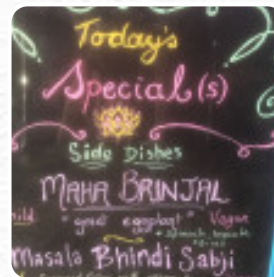 Today's
Special(s)
Side Dishes
MAHA BRINJAL
"great eggplant" Vegan
Masala Bhindi Sabji